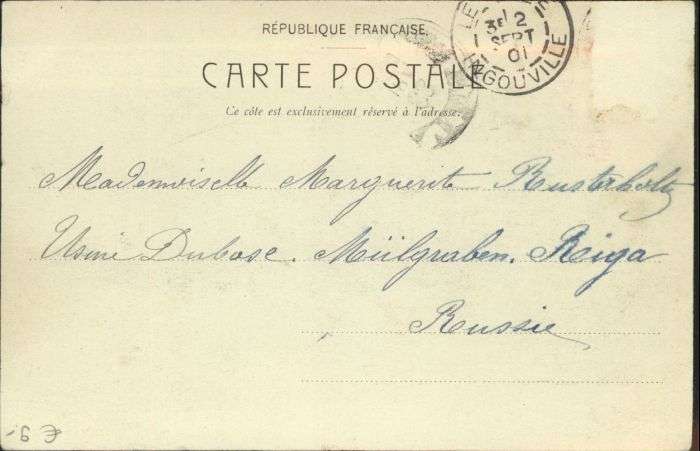 RÉPUBLIQUE FRANÇAISE.
CARTE POSTALE
Ce côté est exclusivement réservé à l'adresse.
LE
3E 2
SEPT
01
GOUVILLE
Mademoiselle Marguerite Rusterholtz
Usine Dubosc. Mülgraben. Reiga
Russie